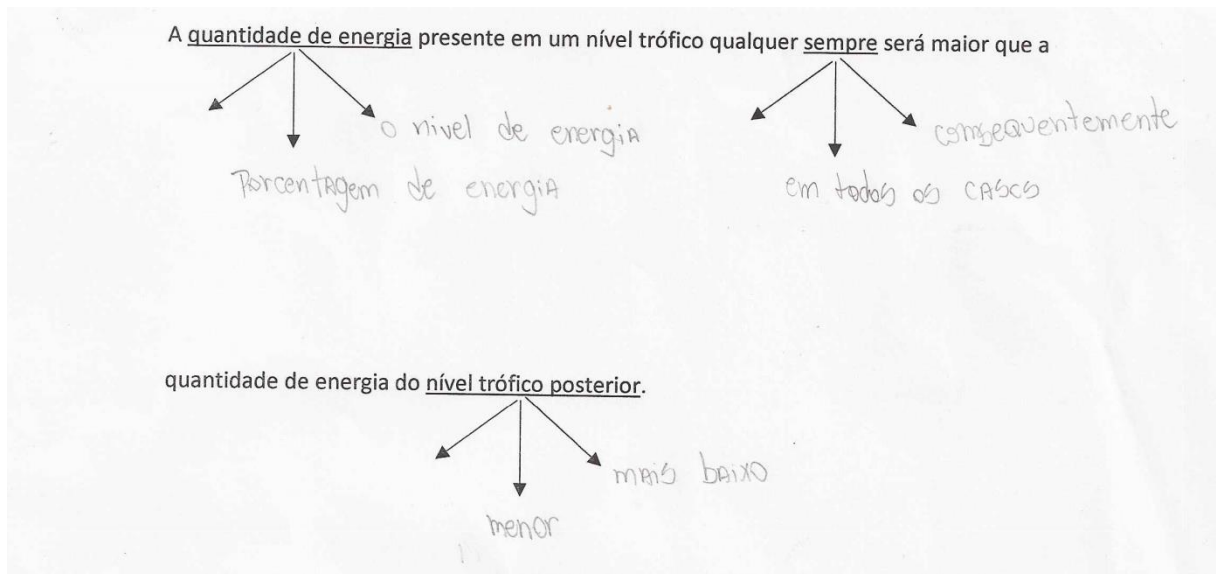 A quantidade de energia presente em um nível trófico qualquer sempre será maior que a
o nivel de energia
consequentemente
Porcentagem de energia
em todos os casos
quantidade de energia do nível trófico posterior.
mais baixo
menor